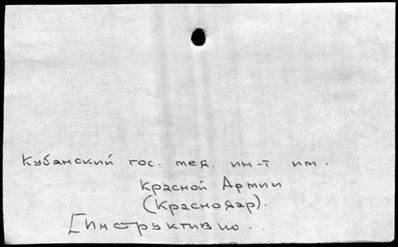 Кубанский гос. мед. ин-т им.
Красной Армии
(Краснодар).